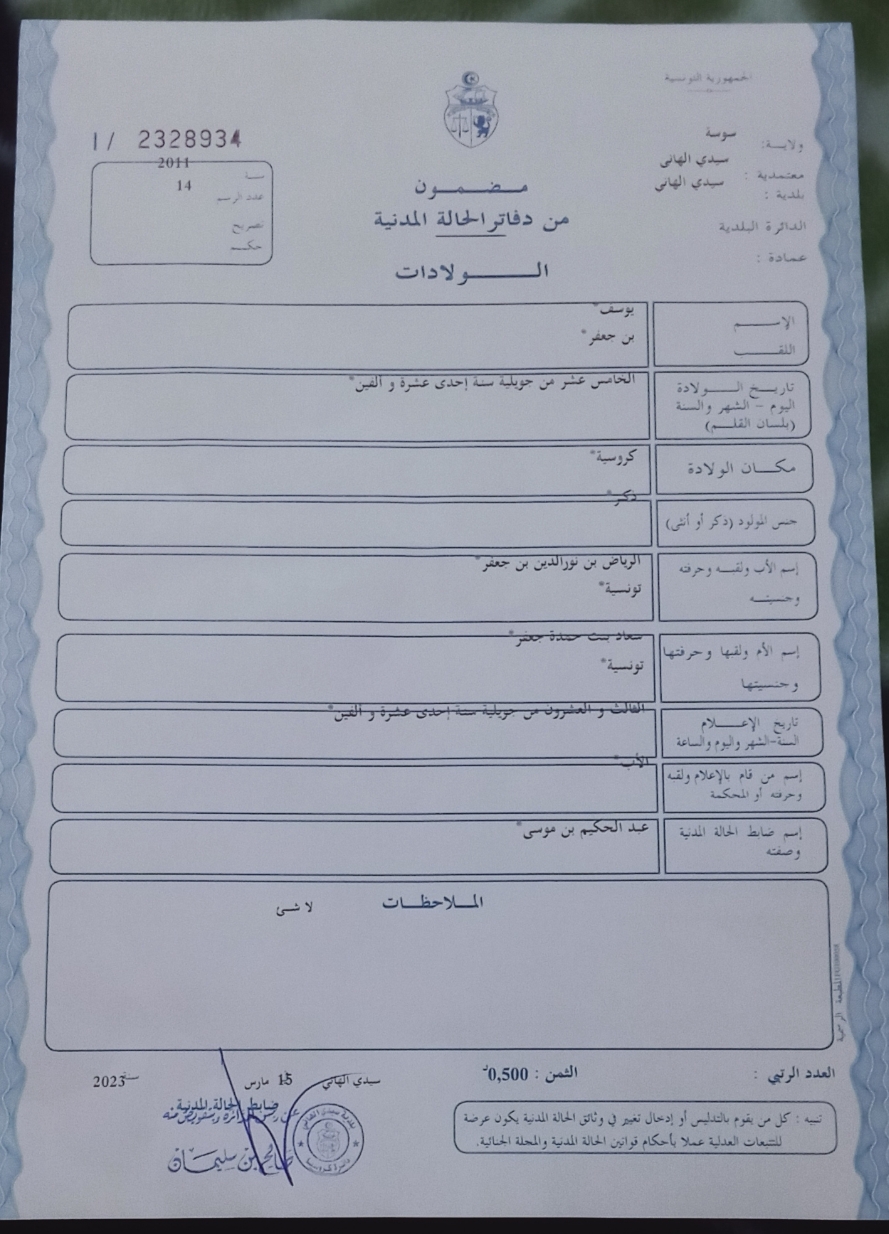 الجمهورية التونسية
ولاية: سوسة
معتمدية : سيدي الهاني
بلدية : سيدي الهاني
الدائرة البلدية
عمادة :
I/ 2328934
سنة 2011
عدد الرسم 14
تصريح
حكم
مضمون
من دفاتر الحالة المدنية
الولادات
الإسم يوسف*
اللقب بن جعفر*
تاريخ الولادة
اليوم - الشهر والسنة
(بلسان القلم)
الخامس عشر من جويلية سنة إحدى عشرة و ألفين*
مكان الولادة كروسية*
جنس المولود (ذكر أو أنثى) ذكر*
إسم الأب ولقبه وحرفته الرياض بن نورالدين بن جعفر*
وجنسيته تونسية*
إسم الأم ولقبها وحرفتها سعاد بنت حمدة جعفر*
وجنسيتها تونسية*
تاريخ الإعلام
السنة-الشهر واليوم والساعة
الثالث و العشرون من جويلية سنة إحدى عشرة و ألفين*
إسم من قام بالإعلام ولقبه
وحرفته أو المحكمة
الأب*
إسم ضابط الحالة المدنية
وصفته
عبد الحكيم بن موسى*
الملاحظات
لا شئ
المطبعة الرسمية
العدد الرتبي :
الثمن : 0,500د
سيدي الهاني 15 مارس سنة 2023
ضابط الحالة المدنية
صالح بن سليمان
تنبيه : كل من يقوم بالتدليس أو إدخال تغيير في وثائق الحالة المدنية يكون عرضة
للتتبعات العدلية عملا بأحكام قوانين الحالة المدنية والمجلة الجنائية.